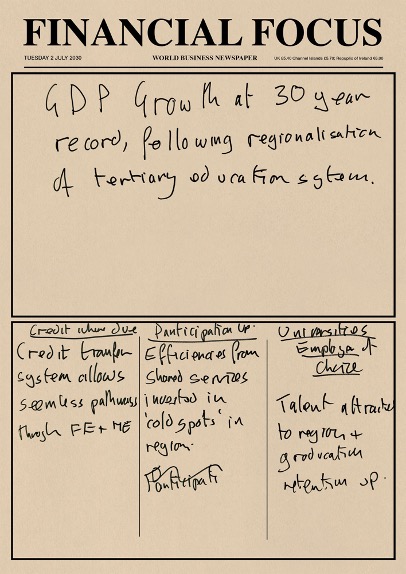 FINANCIAL FOCUS
TUESDAY 2 JULY 2030
WORLD BUSINESS NEWSPAPER
UK £5.40 Channel Islands £5.70; Republic of Ireland €5.80
GDP Growth at 30 year
record, following regionalisation
of tertiary education system.
Credit where due
Credit transfer
system allows
seamless pathways
through FE + HE
Participation up.
Efficiencies from
shared services
invested in
'cold spots' in
region.
Participati
Universities
Employer of
Choice
Talent attracted
to region +
graduation
retention up.